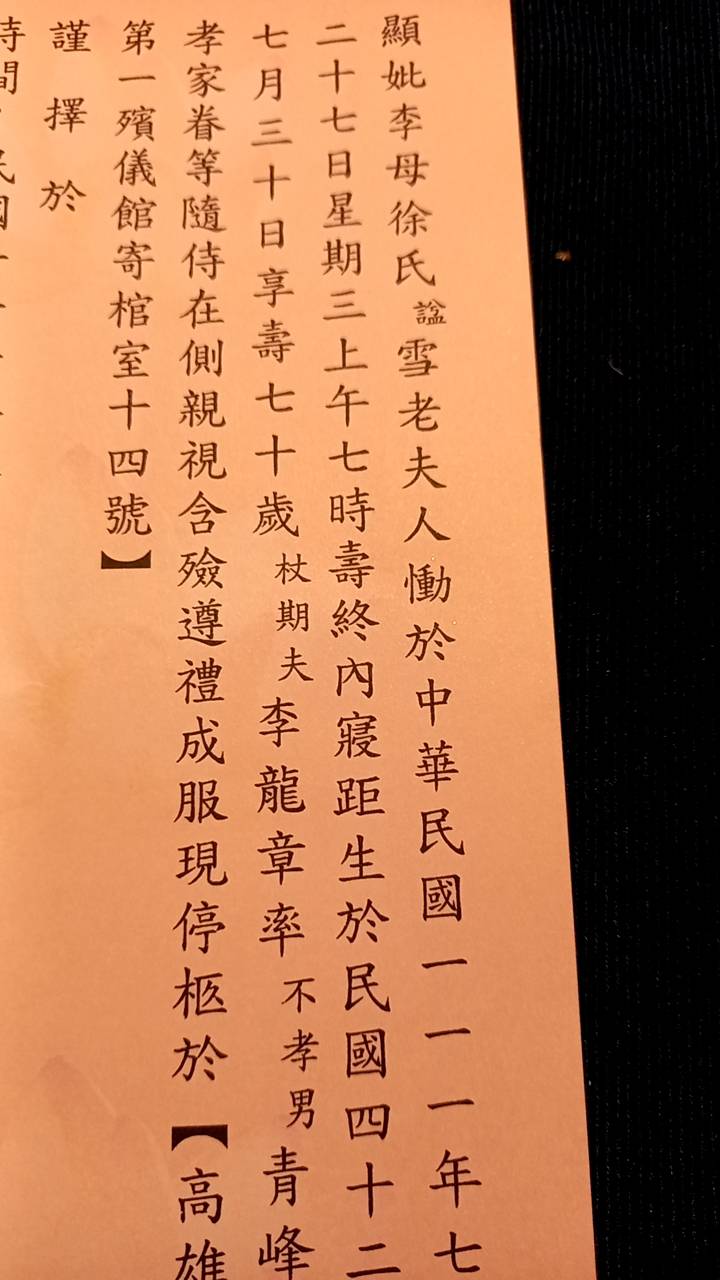 顯妣李母徐氏諡雪老夫人慟於中華民國一一一年七
二十七日星期三上午七時壽終內寢距生於民國四十二
七月三十日享壽七十歲杖期夫李龍章率不孝男青峰
孝家眷等隨侍在側親視含殮遵禮成服現停柩於【高雄
第一殯儀館寄棺室十四號】
謹擇於
時間：民國一一一